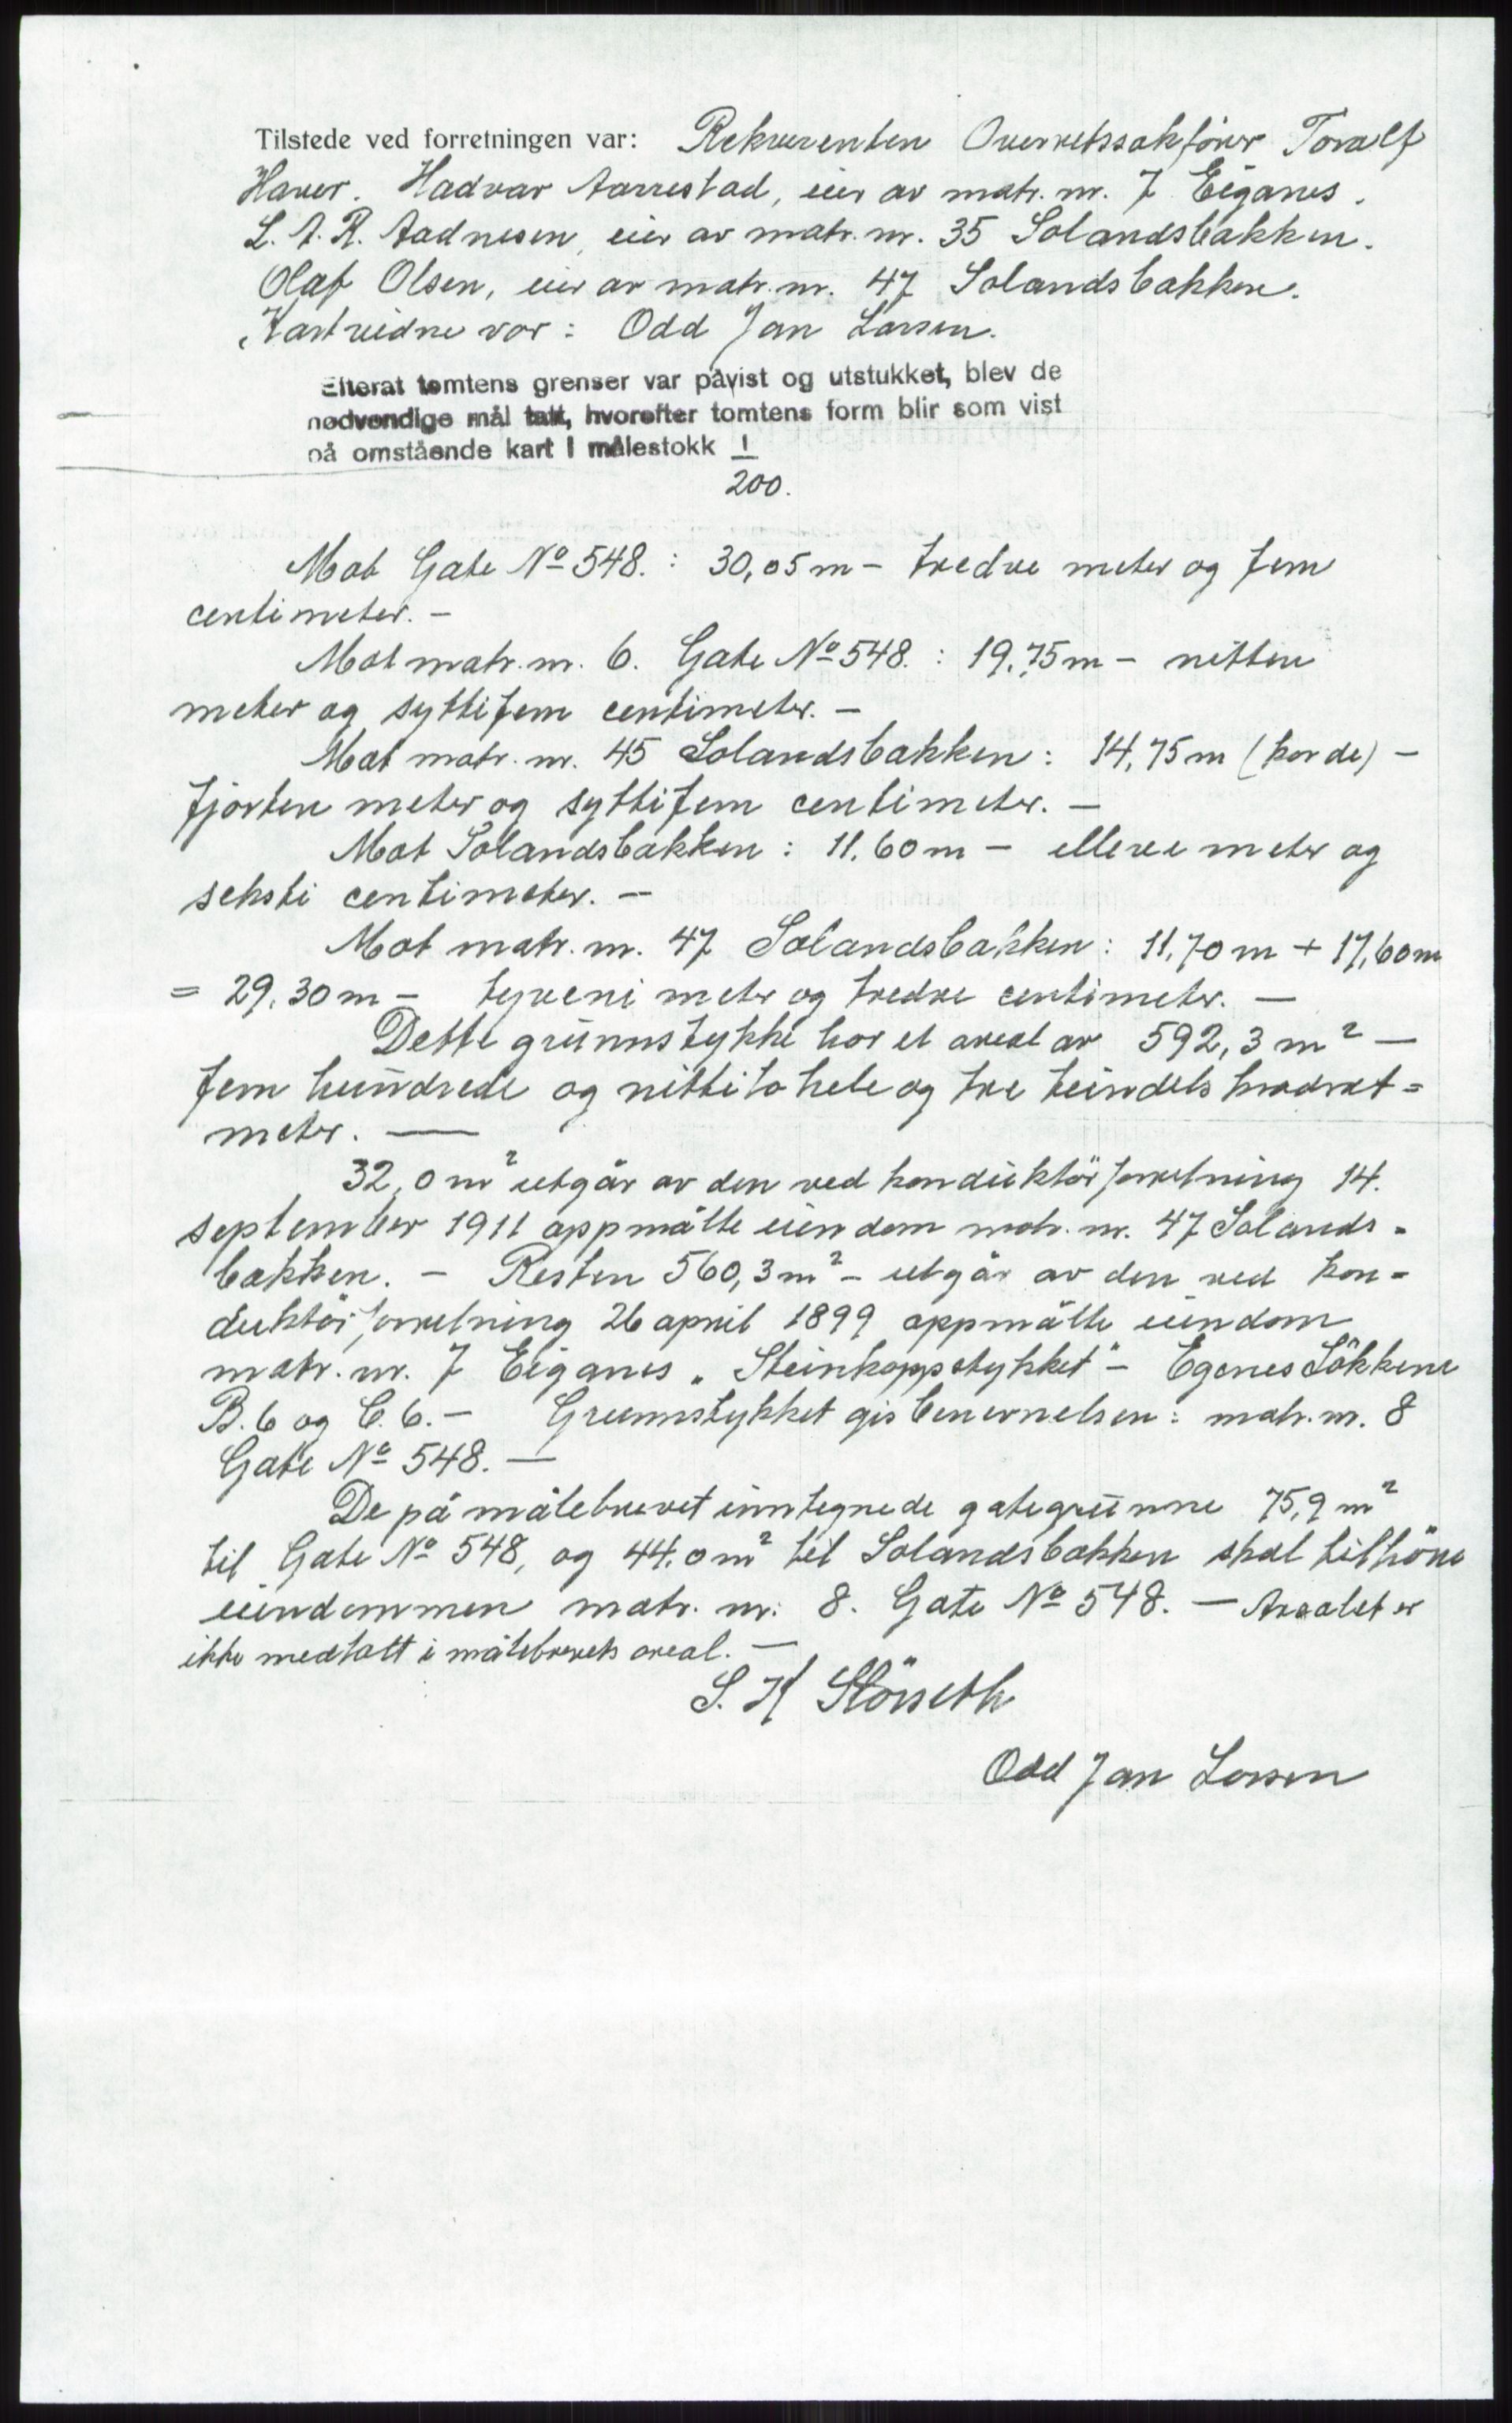 Tilstede ved forretningen var: Rekvirenten Overretssakfører Toralf
Haver. Hadvar Aarrestad, eier av matr. nr. 7 Eiganes.
L. A. R. Aadnesen, eier av matr. nr. 35 Solandsbakken.
Olaf Olsen, eier av matr. nr. 47 Solandsbakken.
Kartvidne var: Odd Jan Larsen.
Efterat tomtens grenser var påvist og utstukket, blev de
nødvendige mål tatt, hvorefter tomtens form blir som vist
på omstående kart i målestokk 1
200.
Mot Gate No 548. : 30,05 m – tredve meter og fem
centimeter. –
Mot matr. nr. 6. Gate No 548. : 19,75 m – nitten
meter og syttifem centimeter. –
Mot matr. nr. 45 Solandsbakken : 14,75 m (korde) –
fjorten meter og syttifem centimeter. –
Mot Solandsbakken : 11,60 m – elleve meter og
seksti centimeter. –
Mot matr. nr. 47 Solandsbakken : 11,70 m + 17,60 m
= 29,30 m – tyveni meter og tredve centimeter. –
Dette grunnstykke har et areal av 592,3 m² –
fem hundrede og nittito hele og tre tiendels kvadrat=
meter. –
32,0 m² utgår av den ved konduktörforretning 14.
september 1911 oppmålte eiendom matr. nr. 47 Solands=
bakken. – Resten 560,3 m² – utgår av den ved kon=
duktörforretning 26 april 1899 oppmålte eiendom
matr. nr. 7 Eiganes „Steinkoppstykket" – Egenes Lökkene
B. 6 og C. 6. – Grunnstykket gis benevnelsen : matr. nr. 8
Gate No 548. –
De på målebrevet inntegnede gategrunne 75,9 m²
til Gate No 548, og 44,0 m² til Solandsbakken skal tilhöre
eiendommen matr. nr. 8. Gate No 548. – Arealet er
ikke medtatt i målebrevets areal. –
S. H Störseth
Odd Jan Larsen